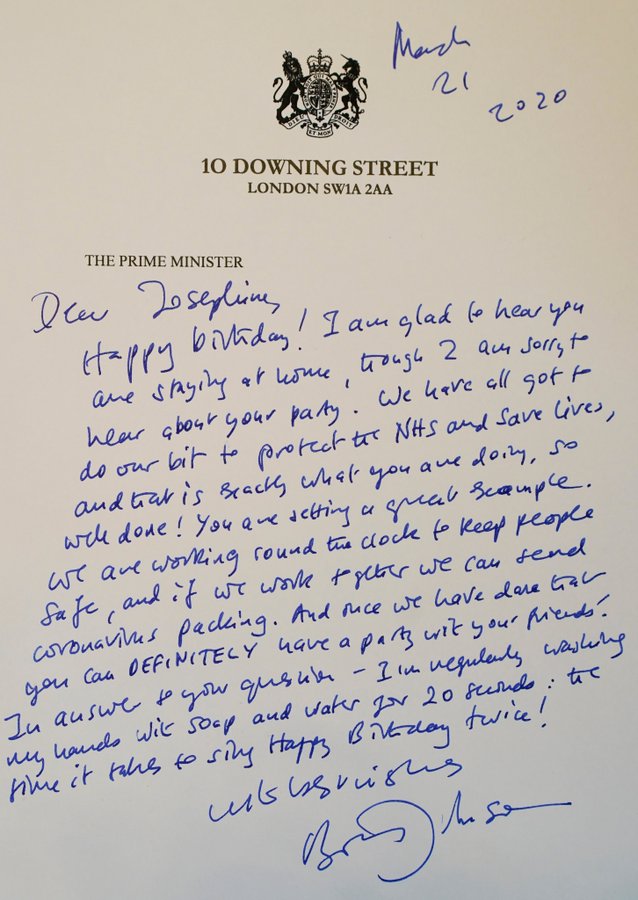 March
21
2020
DIEU ET MON DROIT
10 DOWNING STREET
LONDON SW1A 2AA
THE PRIME MINISTER
Dear Josephine,
Happy birthday! I am glad to hear you
are staying at home, though I am sorry to
hear about your party. We have all got to
do our bit to protect the NHS and save lives,
and that is exactly what you are doing, so
well done! You are setting a great example.
We are working round the clock to keep people
safe, and if we work together we can send
coronavirus packing. And once we have done that
you can DEFINITELY have a party with your friends!
In answer to your question – I'm regularly washing
my hands with soap and water for 20 seconds: the
time it takes to sing Happy Birthday twice!
With best wishes
Boris Johnson